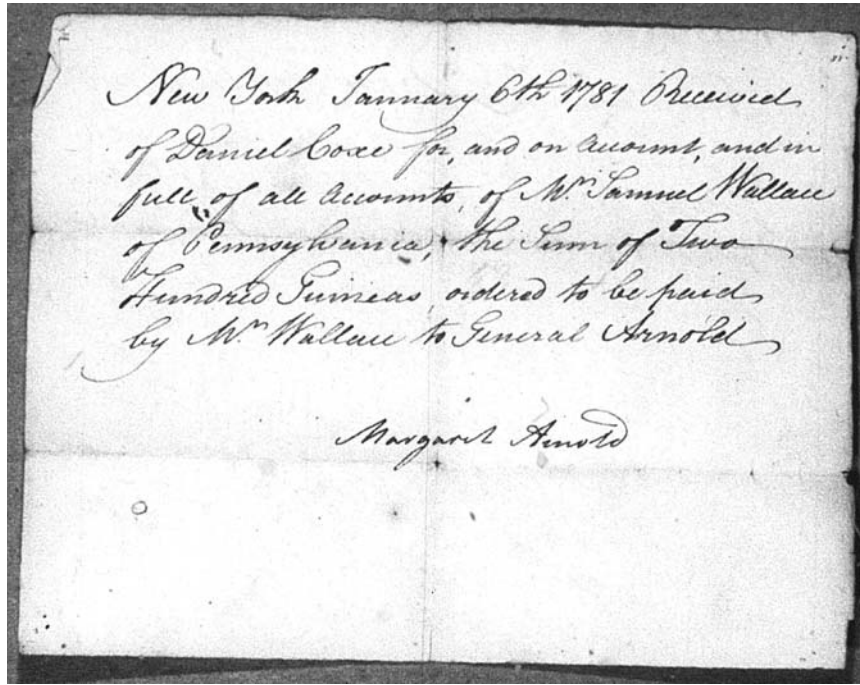 New York January 6th 1781 Received
of Daniel Coxe for, and on Account, and in
full, of all Accounts, of Mr. Samuel Wallace
of Pennsylvania, the Sum of Two
Hundred Guineas, ordered to be paid
by Mr. Wallace to General Arnold
Margaret Arnold